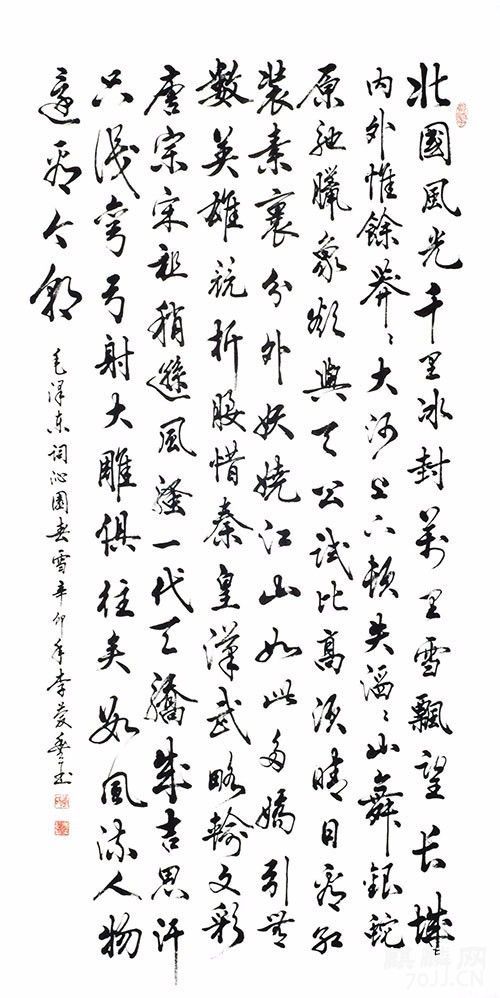 北國風光千里冰封萬里雪飄望長城
内外惟餘莽々大河上下頓失滔々山舞銀蛇
原馳臘象欲與天公試比高須晴日看紅
装素裹分外妖嬈江山如此多嬌引無
數英雄競折腰惜秦皇漢武略輸文彩
唐宗宋祖稍遜風騷一代天驕成吉思汗
只識彎弓射大雕俱往矣數風流人物
還看今朝
毛泽东词沁園春雪辛卯年李爱
麒麟网
70JJ.CN